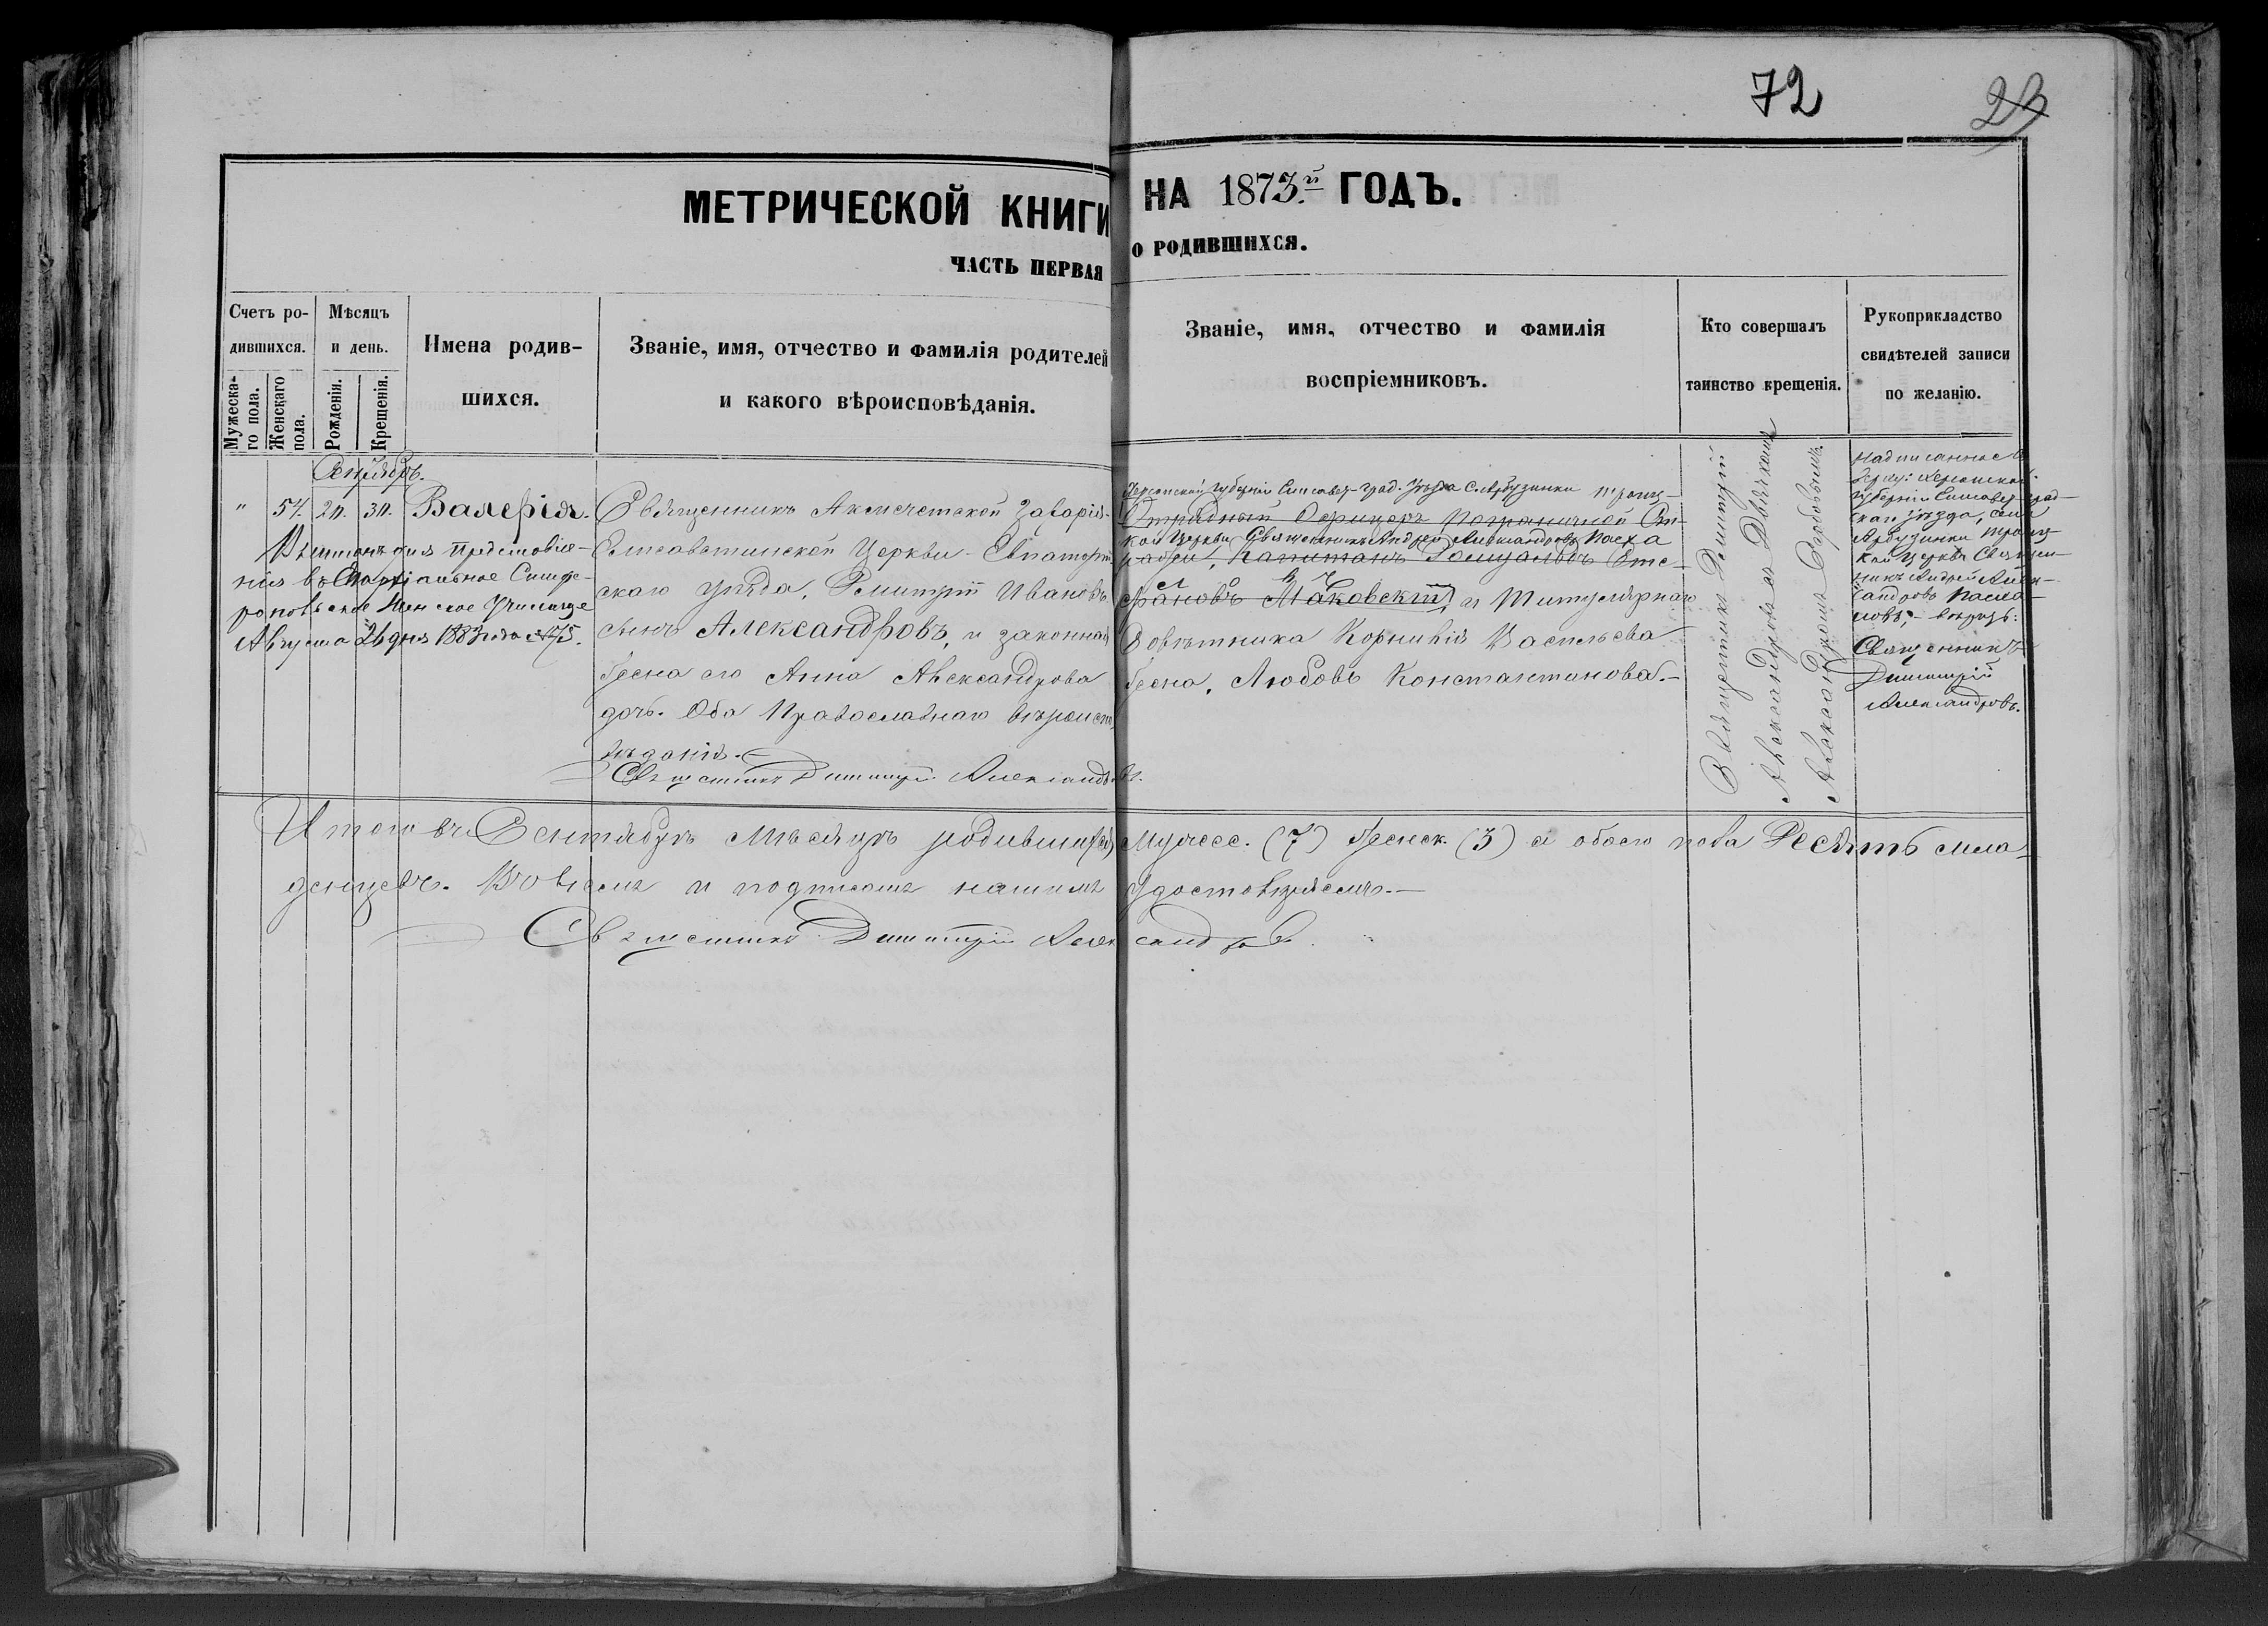 72
23
МЕТРИЧЕСКОЙ КНИГИ НА 1873.й ГОДЪ.
ЧАСТЬ ПЕРВАЯ О РОДИВШИХСЯ.
Счетъ родившихся.
Мужескаго пола.
Женскаго пола.
Мѣсяцъ и день.
Рожденія.
Крещенія.
Имена родив-
шихся.
Званіе, имя, отчество и фамилія родителей
и какого вѣроисповѣданія.
Званіе, имя, отчество и фамилія
воспріемниковъ.
Кто совершалъ
таинство крещенія.
Рукоприкладство
свидѣтелей записи
по желанію.
Сентябрь.
" 57. 2п. 3п. Валерія.
для представле-
нія въ Епархіальное Симфе-
ропольское Женское Училище
Августа 24 дня 1883 года № 75.
Священникъ Акмечетской Захаріе-
Елисаветинской Церкви Евпаторій
скаго уѣзда, Димитрій Ивановъ
сынъ Александровъ, и законная
жена его Анна Александрова
дочь. Оба Православнаго вѣроиспо
вѣданія.
Священникъ Димитрій Александровъ.
Херсонской губерніи Елисавет-град. уѣзда с. Арбузинки троиц-
Отрядный Офицеръ Пограничной Стр-
кой Церкви Священникъ Андрей Александровъ Пасха
ражи, Капитанъ Ромуальдъ Сте-
ловъ
фановъ Маковскій, и Титулярнаго
Совѣтника Корнилія Васильева
жена, Любовь Константинова.
Священникъ Димитрій
Александровъ съ Дьячкомъ
Александромъ
Надписанное
верху: Херсонской
губерніи Елисавет-град-
скаго уѣзда, села
Арбузинки троиц-
кой церкви Священ-
никъ Андрей Алек-
сандровъ Пасха-
ловъ, – вѣрно:
Священникъ
Димитрій
Александровъ.
Итого въ Сентябрѣ мѣсяцѣ родившихся Мужеск. (7) Женск. (3) а обоего пола Десять мла-
денцевъ. Въ чемъ и подписомъ нашимъ удостовѣряемъ.
Священникъ Димитрій Александровъ.